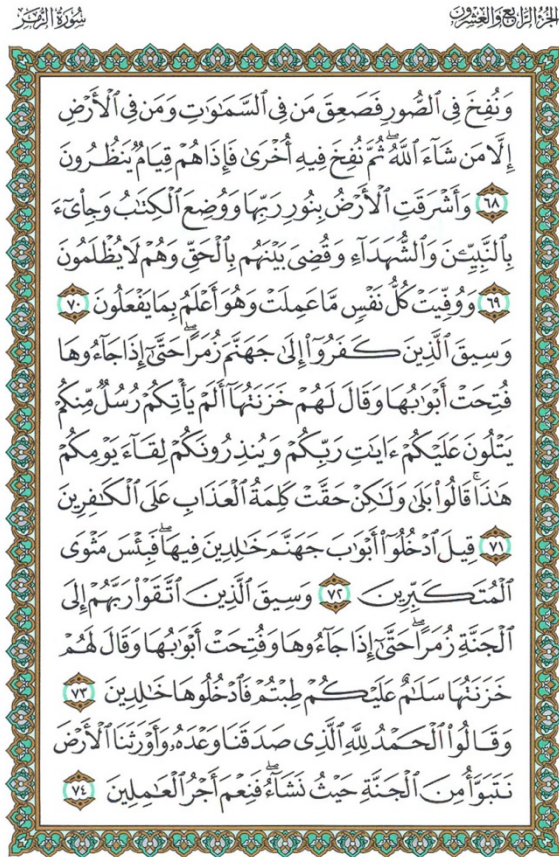 الجزء الرابع والعشرون
سورة الزمر
وَنُفِخَ فِي ٱلصُّورِ فَصَعِقَ مَن فِي ٱلسَّمَٰوَٰتِ وَمَن فِي ٱلۡأَرۡضِ
إِلَّا مَن شَآءَ ٱللَّهُۖ ثُمَّ نُفِخَ فِيهِ أُخۡرَىٰ فَإِذَا هُمۡ قِيَامٞ يَنظُرُونَ
٦٨ وَأَشۡرَقَتِ ٱلۡأَرۡضُ بِنُورِ رَبِّهَا وَوُضِعَ ٱلۡكِتَٰبُ وَجِاْيٓءَ
بِٱلنَّبِيِّـۧنَ وَٱلشُّهَدَآءِ وَقُضِيَ بَيۡنَهُم بِٱلۡحَقِّ وَهُمۡ لَا يُظۡلَمُونَ
٦٩ وَوُفِّيَتۡ كُلُّ نَفۡسٖ مَّا عَمِلَتۡ وَهُوَ أَعۡلَمُ بِمَا يَفۡعَلُونَ ٧٠
وَسِيقَ ٱلَّذِينَ كَفَرُوٓاْ إِلَىٰ جَهَنَّمَ زُمَرًاۖ حَتَّىٰٓ إِذَا جَآءُوهَا
فُتِحَتۡ أَبۡوَٰبُهَا وَقَالَ لَهُمۡ خَزَنَتُهَآ أَلَمۡ يَأۡتِكُمۡ رُسُلٞ مِّنكُمۡ
يَتۡلُونَ عَلَيۡكُمۡ ءَايَٰتِ رَبِّكُمۡ وَيُنذِرُونَكُمۡ لِقَآءَ يَوۡمِكُمۡ
هَٰذَاۚ قَالُواْ بَلَىٰ وَلَٰكِنۡ حَقَّتۡ كَلِمَةُ ٱلۡعَذَابِ عَلَى ٱلۡكَٰفِرِينَ
٧١ قِيلَ ٱدۡخُلُوٓاْ أَبۡوَٰبَ جَهَنَّمَ خَٰلِدِينَ فِيهَاۖ فَبِئۡسَ مَثۡوَى
ٱلۡمُتَكَبِّرِينَ ٧٢ وَسِيقَ ٱلَّذِينَ ٱتَّقَوۡاْ رَبَّهُمۡ إِلَى
ٱلۡجَنَّةِ زُمَرًاۖ حَتَّىٰٓ إِذَا جَآءُوهَا وَفُتِحَتۡ أَبۡوَٰبُهَا وَقَالَ لَهُمۡ
خَزَنَتُهَا سَلَٰمٌ عَلَيۡكُمۡ طِبۡتُمۡ فَٱدۡخُلُوهَا خَٰلِدِينَ ٧٣
وَقَالُواْ ٱلۡحَمۡدُ لِلَّهِ ٱلَّذِي صَدَقَنَا وَعۡدَهُۥ وَأَوۡرَثَنَا ٱلۡأَرۡضَ
نَتَبَوَّأُ مِنَ ٱلۡجَنَّةِ حَيۡثُ نَشَآءُۖ فَنِعۡمَ أَجۡرُ ٱلۡعَٰمِلِينَ ٧٤